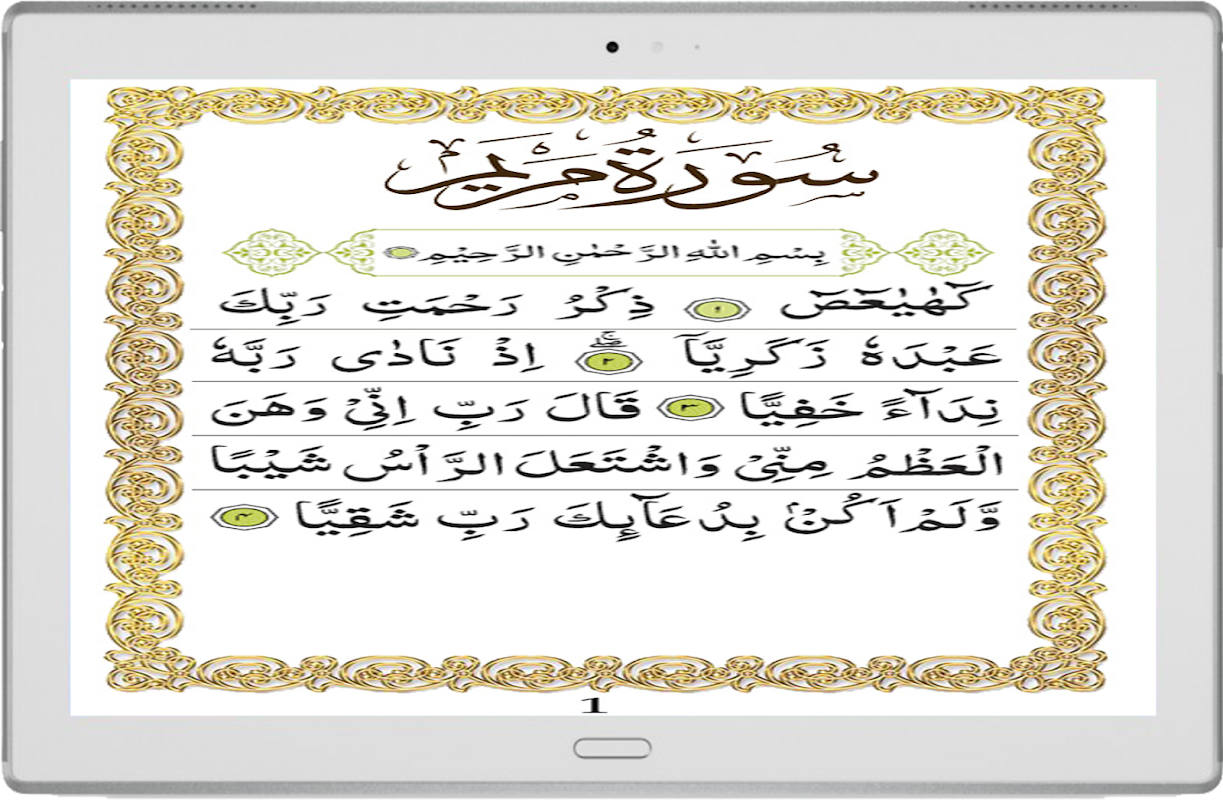 سُورَةُ مَرْيَم
بِسْمِ اللّٰهِ الرَّحْمٰنِ الرَّحِيْمِ
كٓهٰيٰعٓصٓ ۝١ ذِكْرُ رَحْمَتِ رَبِّكَ
عَبْدَهٗ زَكَرِيَّاۖۚ ۝٢ اِذْ نَادٰى رَبَّهٗ
نِدَآءً خَفِيًّا ۝٣ قَالَ رَبِّ اِنِّيْ وَهَنَ
الْعَظْمُ مِنِّيْ وَاشْتَعَلَ الرَّاْسُ شَيْبًا
وَّلَمْ اَكُنْۢ بِدُعَآىِٕكَ رَبِّ شَقِيًّا ۝٤
1